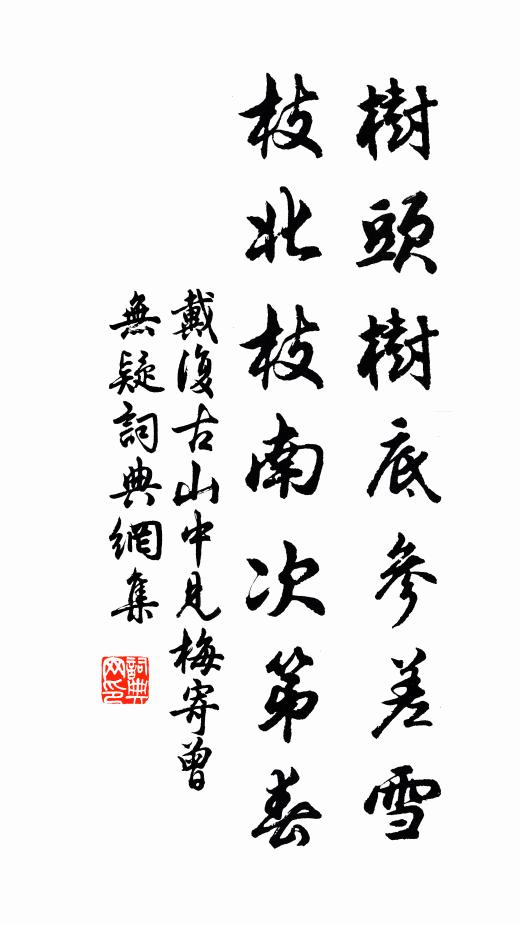 樹頭樹底參差雪
枝北枝南次第春
戴復古山中見梅寄曾
無疑詞典網集
詞典網印